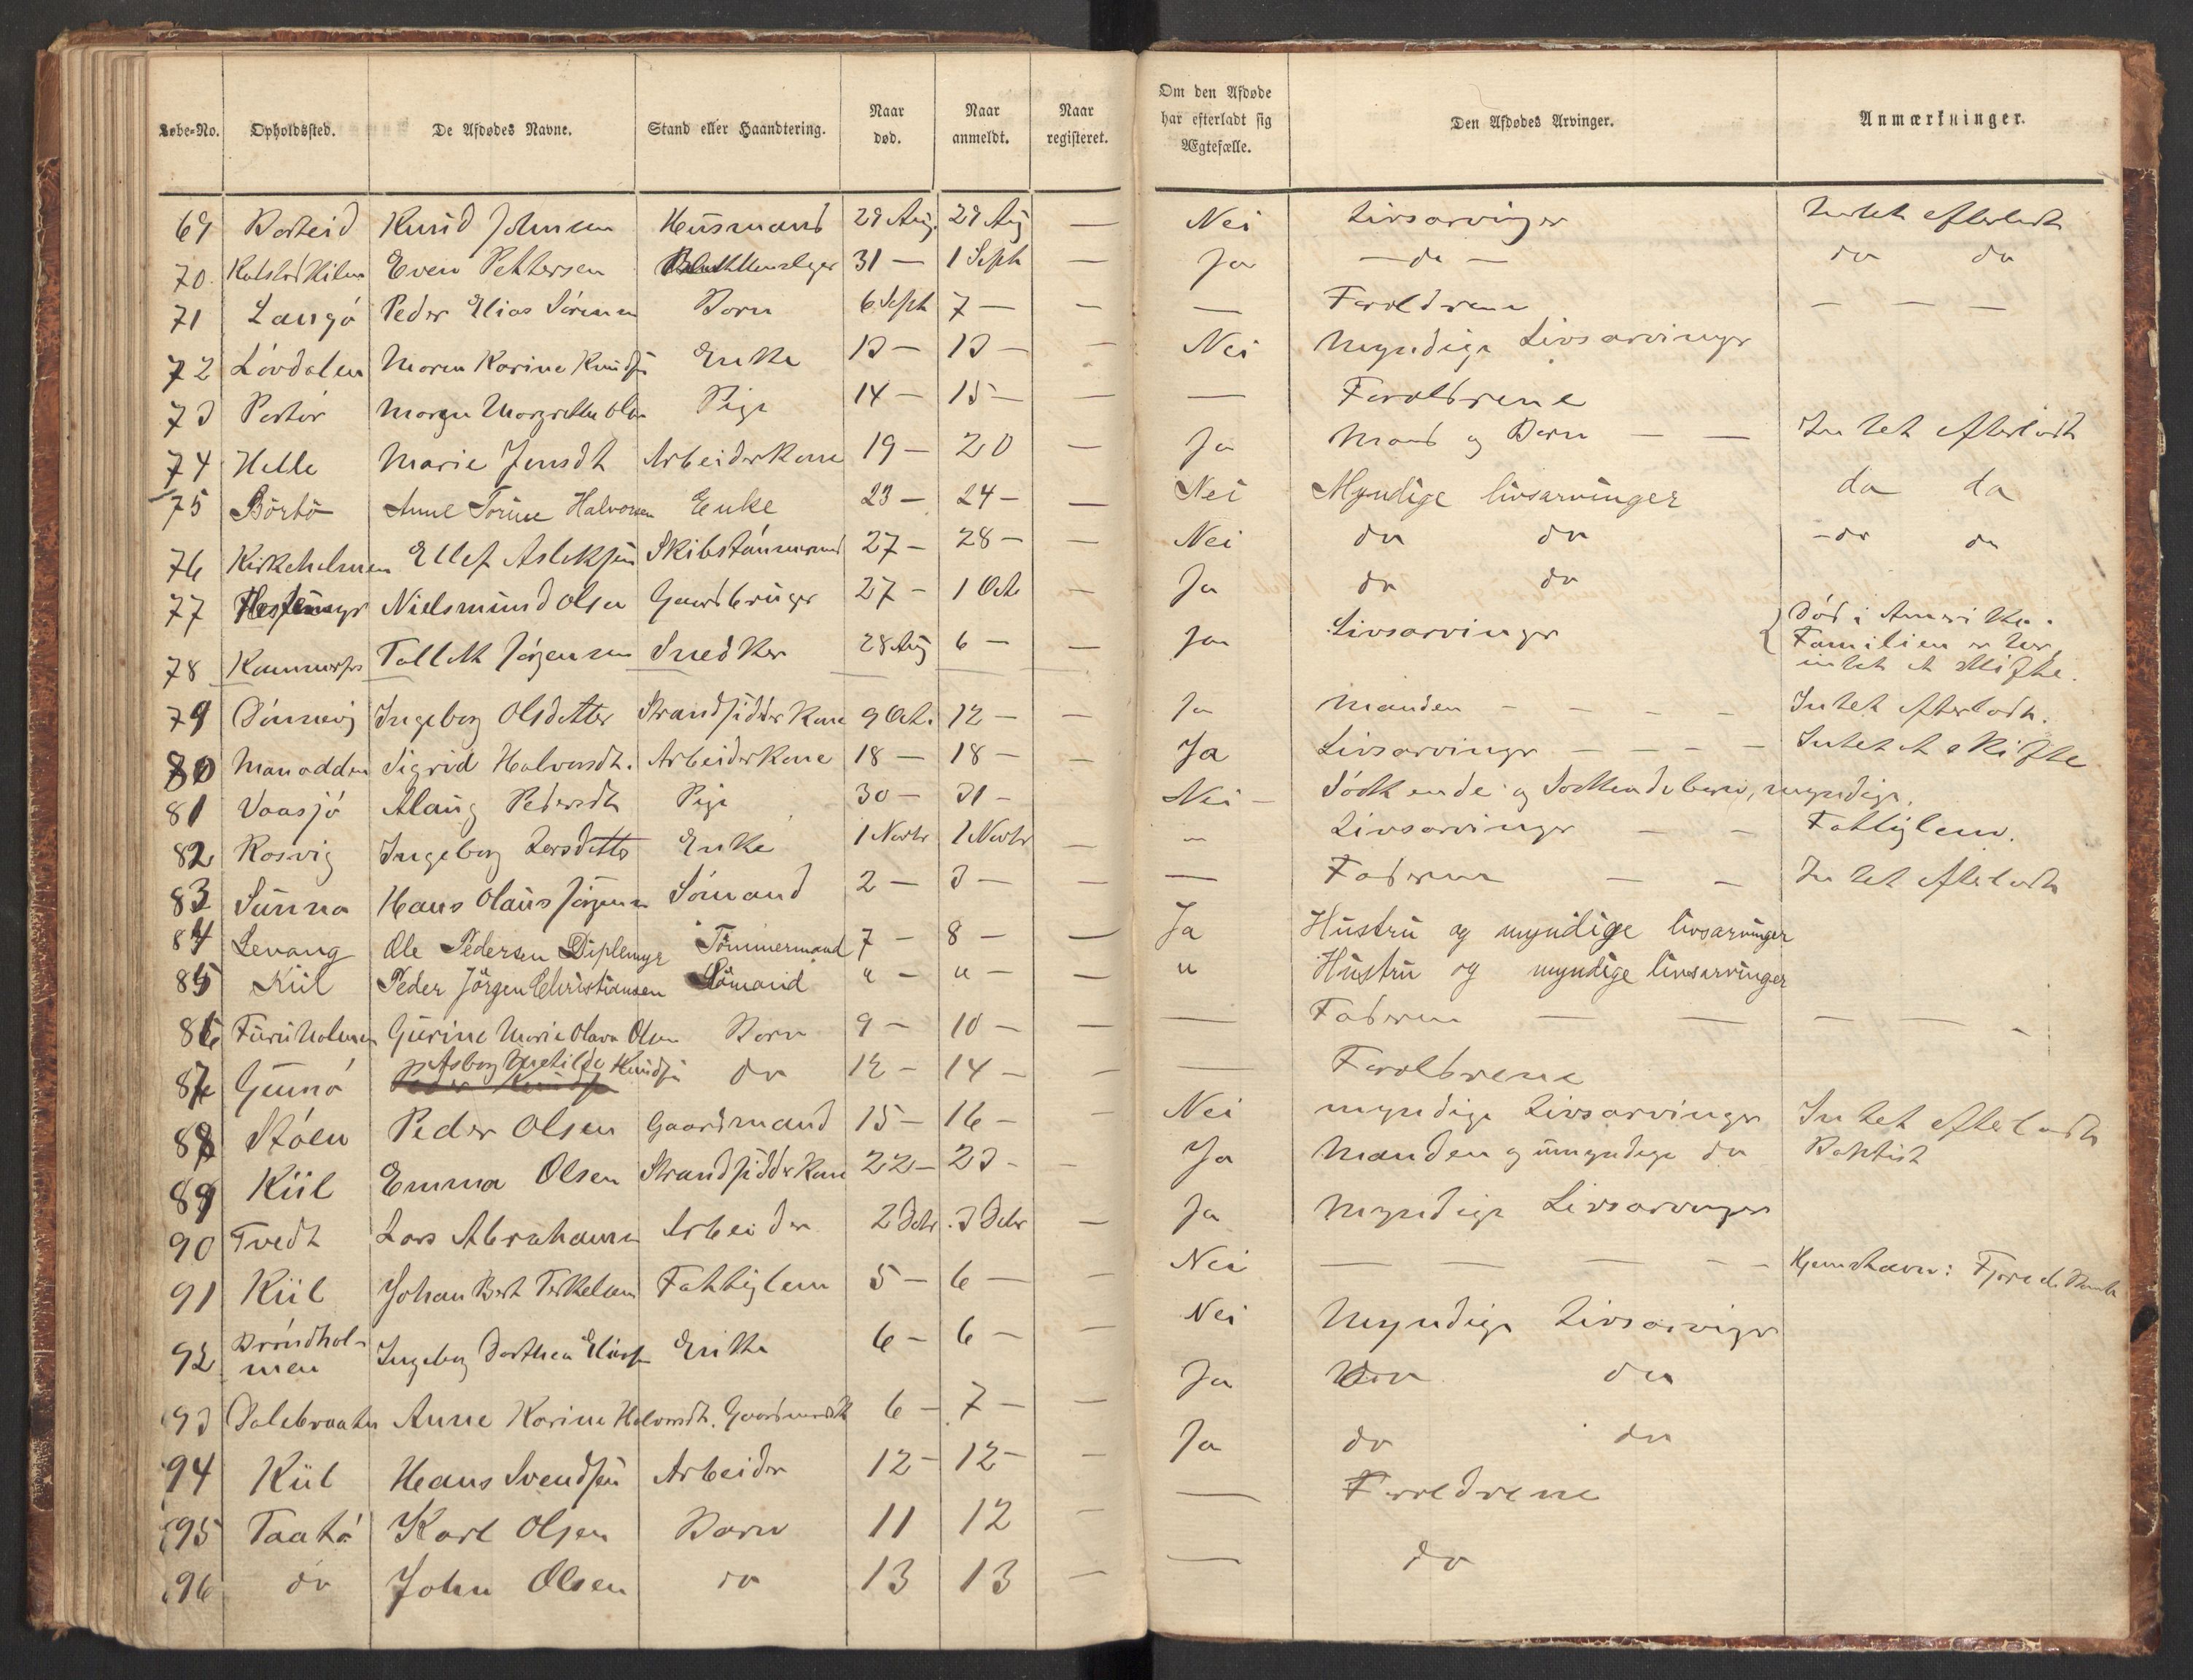 Løbe-No. Opholdssted. De Afdødes Navne. Stand eller Haandtering. Naar død. Naar anmeldt. Naar registeret. Om den Afdøde har efterladt sig Ægtefælle. Den Afdødes Arvinger. Anmærkninger.
69 Barteid Knud Johnsen Husmand 29 Aug. 29 Aug — Nei Livsarvinger Intet efterladt
70 Even Pettersen 31 — 1 Sept — Ja — do — do do
71 Langö Peder Elias Börn 6 Sept 7 — — — Forældrene — — —
72 Lövdalen Maren Karine Knudsen Enke 13 — 13 — — Nei Myndige Livsarvinger
73 Portör Maren Margrethe Olsen Pige 14 — 15 — — — Forældrene
74 Helle Marie Jensdt Arbeiderkone 19 — 20 — Ja Mand og Börn — — Intet efterladt
75 Börtö Anne Torine Halvorsen Enke 23 — 24 — — Nei Myndige livsarvinger do do
76 Kirkeholmen Ellef Aslaksen Skibstömmermand 27 — 28 — — Nei do do — do do
77 Nielsmund Olsen Gaardbruger 27 — 1 Oct — Ja do do
78 Tallak Jörgensen Snedker 28 Aug 6 — — Ja Livsarvinger { Död i Amerika.
Familien er her,
intet at skifte.
79 Dönnevig Ingeborg Olsdatter Strandsidderkone 9 Oct. 12 — — Ja Manden — — — — Intet efterladt.
80 Manodden Sigrid Halvorsdt. Arbeiderkone 18 — 18 — — Ja Livsarvinger — — — — Intet at skifte
81 Vaasjö Alaug Pedersdt Pige 30 — 31 — Nei — Södskende og Södskendebörn, myndige.
82 Rosvig Ingeborg Larsdatter Enke 1 Novbr 1 Novbr — — Livsarvinger — — Fattiglem.
83 Sünna Hans Olaus Jörgensen Sömand 2 — 3 — — — Faderen — — Intet efterladt
84 Levang Ole Pedersen Diplemyr Tömmermand 7 — 8 — — Ja Hustru og myndige livsarvinger
85 Kiil Peder Jörgen Christiansen Sömand " — " — — " Hustru og myndige livsarvinger
86 Furuholmen Gurine Marie Olava Olsen Barn 9 — 10 — — — Faderen — — — — —
87 Gumö Asborg Metilde Knudsen do 12 — 14 — — — Forældrene
88 Stöen Peder Olsen Gaardmand 15 — 16 — — Nei myndige Livsarvinger Intet efterladt
89 Kiil Emma Olsen Strandsidderkone 22 — 23 — — Ja Manden og umyndige do Baptist
90 Tvedt Lars Abrahamsen Arbeider 2 Debr. 3 Debr — Ja Myndige Livsarvinger
91 Kiil Johan Bert Terkelsen Fattiglem 5 — 6 — — Nei — — — — — Hjemstavn:
92 Bröndhol-
men Ingeborg Dorthea Enke 6 — 6 — — Nei Myndige Livsarvinger
93 Dalebraaten Anne Karine Halvorsdt. 6 — 7 — — Ja do do
94 Kiil Hans Svendsen Arbeider 12 — 12 — — Ja do do
95 Taatö Karl Olsen Barn 11 12 — — Forældrene
96 do John Olsen do 13 13 — — do